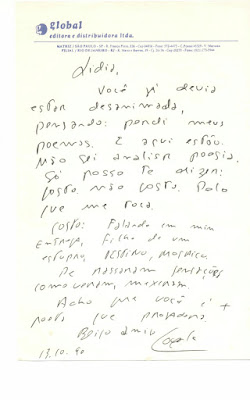 global
editora e distribuidora ltda.
Lidia,
Você já devia
estar desanimada,
pensando: perdi meus
poemas. E aqui estão.
Não sei analisar poesia.
Só posso te dizer:
gosto, não gosto. Pelo
que me toca.
Gosto: Falando em min
Entrega, Filha de um
estupro, Destino, Mosaico
Me passaram sensações
como vieram, mexeram.
Acho que você é +
poeta que prosadora.
Beijo amigo
13.10.90